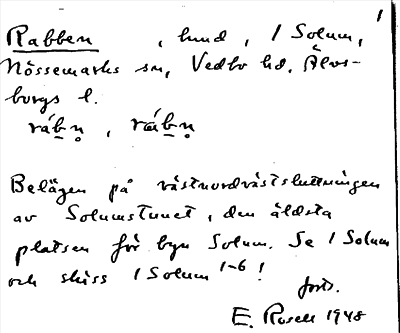 1
Rabben , lund, 1 Solum,
Nössemarks sn, Vedbo hd. Älvs-
borgs l.
rábn̥ , ráebn̥
Belägen på västnordvästsluttningen
av Solumstunet, den äldsta
platsen för byn Solum. Se 1 Solum
och skiss 1 Solum 1-6!
forts.
E. Rosell 1948